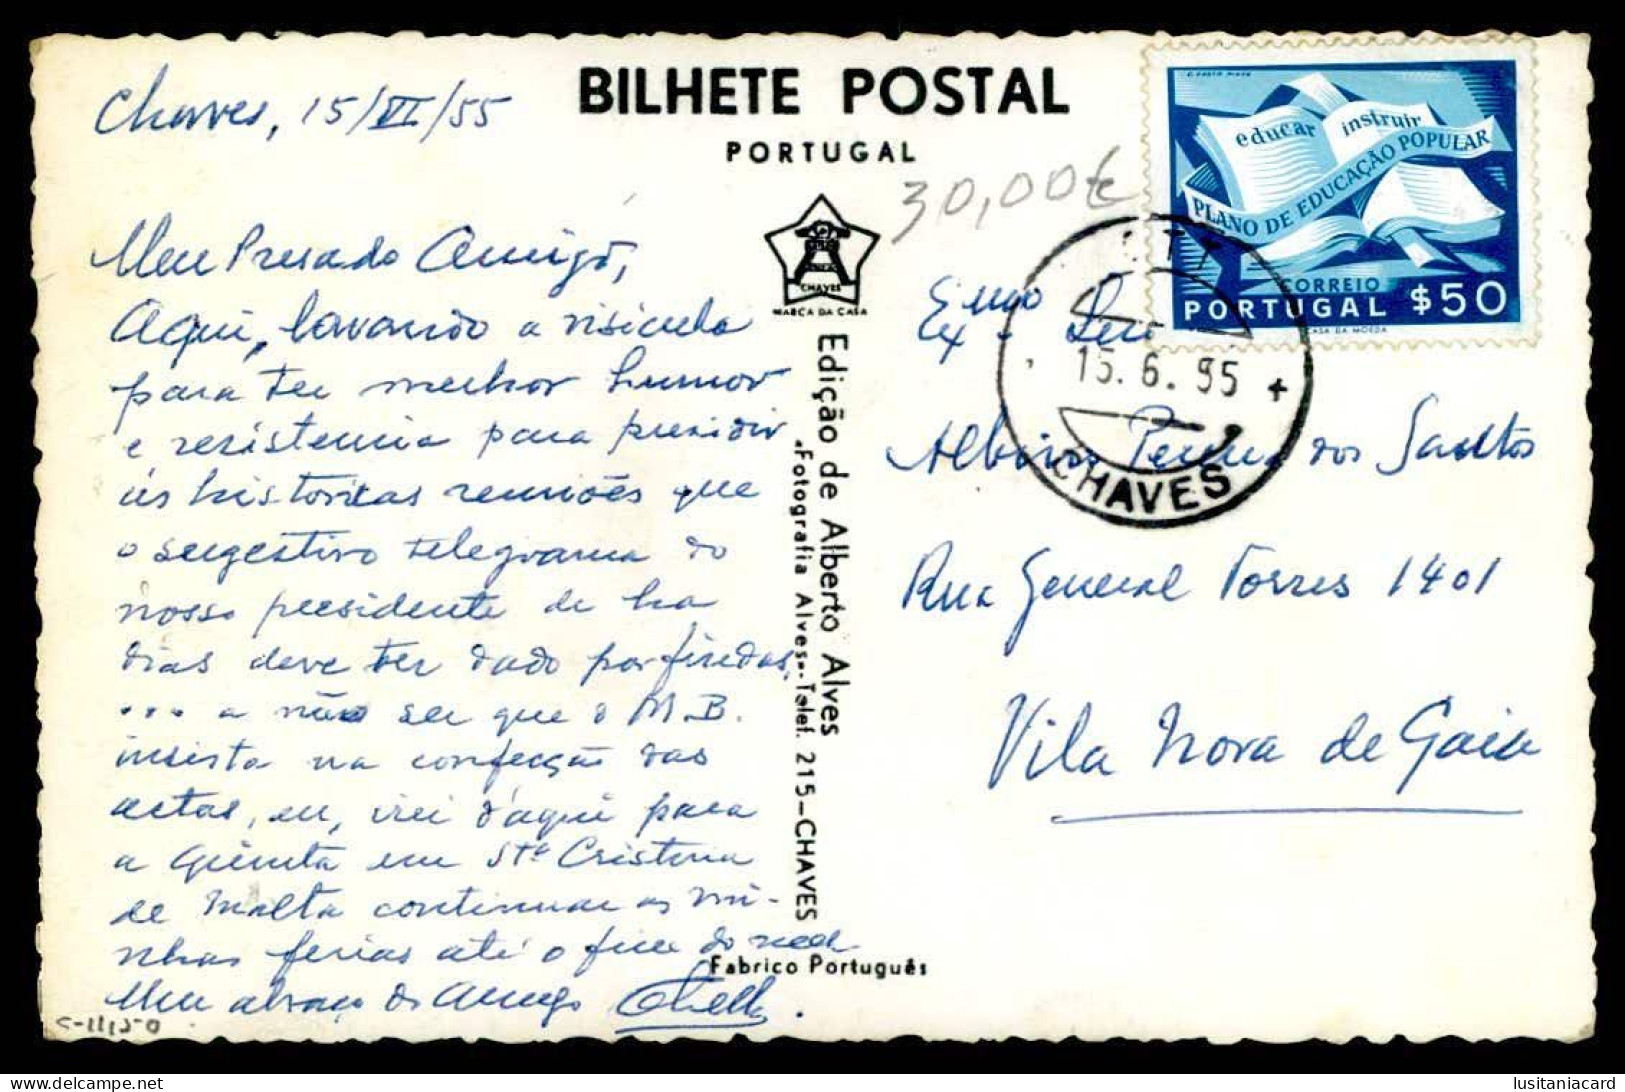 Chaves, 15/VI/55
Meu Presado Amigo,
Aqui, lavando a visicula
para ter melhor humor
e resistencia para presidir
ás historicas reuniões que
o sugestivo telegrama do
nosso presidente de ha
dias deve ter dado por findas,
... a não ser que o M.B.
insista na confecção das
actas, eu, irei d'aqui para
a Quinta em Stª Cristina
de Malta continuar as mi-
nhas ferias até o fim do
Meu abraço do Amigo
S-11150
BILHETE POSTAL
PORTUGAL
30,00€
CHAVES
MARCA DA CASA
Edição de Alberto Alves
"Fotografia Alves"-Telef. 215-CHAVES
Fabrico Português
educar instruir
PLANO DE EDUCAÇÃO POPULAR
CORREIO
PORTUGAL $50
CASA DA MOEDA
CTT
15.6.55
CHAVES
Exmo Snr
Albino Pereira dos Santos
Rua General Torres 1401
Vila Nova de Gaia
lusitaniacard